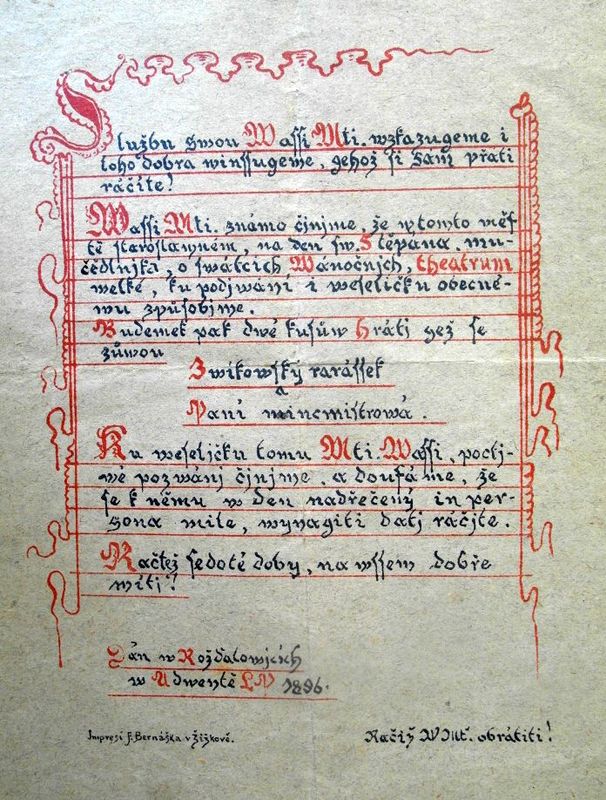 Službu swou Wassi Mti. wzkazugeme i
toho dobra winssugeme, gehož si sami přáti
ráčíte!
Wassi Mti. známo činjme, že w tomto měs-
tě staroslawném, na den sw. Štěpána, mu-
čedlníka, o swátcích Wánočnjch, theatrum
welké, ku podjwání i weseličku obecné-
mu způsobjme.
Budemeť pak dwě kusůw hráti gež se
zůwou
Zwíkowský rarássek
a
Paní mincmistrowá.
Ku weseličku tomu Mti. Wassi, poctj-
wé pozwánj činjme, a daufáme, že
se k němu w den nadřečený in per-
sona mile, wynagíti datj ráčjte.
Račtež se doté doby, na wssem dobře
míti!
Dán w Rožďalowjcích
w Adwentě LP 1896.
Impresí F. Bernáška v Žižkově.
Račiž W Mť. obrátiti!